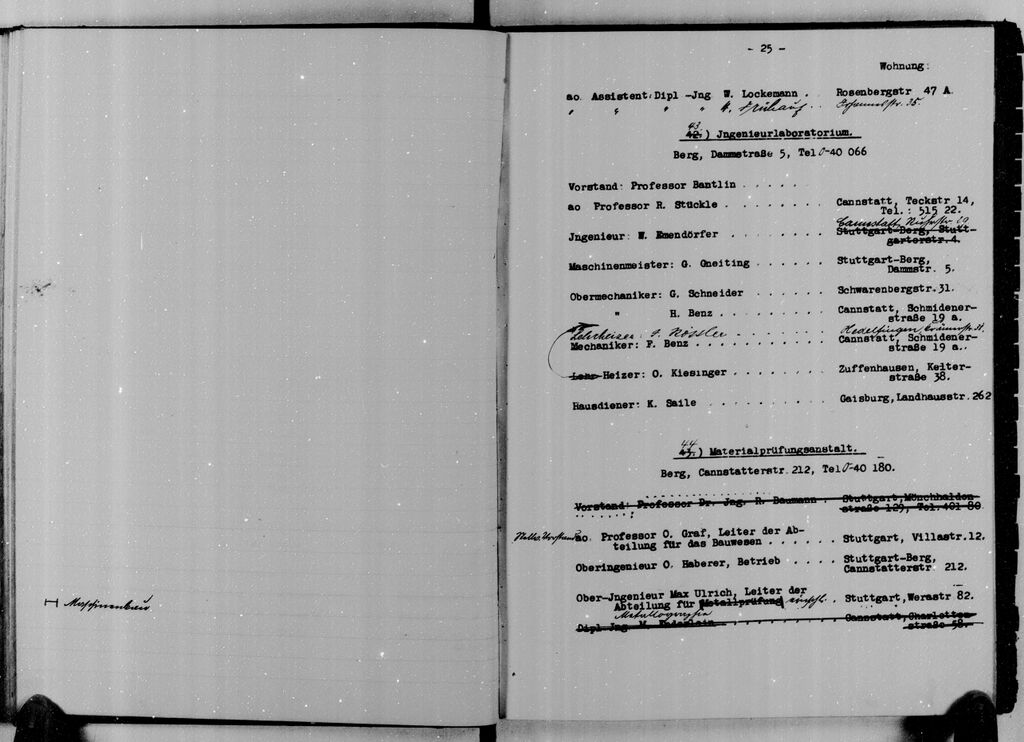 Maschinenbau
- 25 -
Wohnung:
ao. Assistent: Dipl -Jng W. Lockemann . Rosenbergstr 47 A.
" " " " Johannesstr. 35.
43.
42.) Jngenieurlaboratorium.
Berg, Dammstraße 5, Tel 0-40 066
Vorstand: Professor Bantlin . . . . . .
ao Professor R. Stückle . . . . . . . Cannstatt, Teckstr 14,
Tel.: 515 22.
Cannstatt, 29
Jngenieur: W. Emendörfer . . . . . . . Stuttgart-Berg, Stutt-
garterstr. 4.
Maschinenmeister: G. Gneiting . . . . . . Stuttgart-Berg,
Dammstr. 5.
Obermechaniker: G. Schneider . . . . . . Schwarenbergstr. 31.
" H. Benz . . . . . . . . Cannstatt, Schmidener-
straße 19 a.
Nössler . . . . . . . . Hedelfingen,
Mechaniker: F. Benz . . . . . . . . . . Cannstatt, Schmidener-
straße 19 a..
Heizer: O. Kiesinger . . . . . . . Zuffenhausen, Kelter-
straße 38.
Hausdiener: K. Saile . . . . . . . . . Gaisburg, Landhausstr. 262
44.
43.) Materialprüfungsanstalt.
Berg, Cannstatterstr. 212, Tel 0-40 180.
Vorstand: Professor Dr. Jng. R. Baumann . Stuttgart, Mönchhalden-
straße 129, Tel. 401 80
ao. Professor O. Graf, Leiter der Ab-
teilung für das Bauwesen . . . . . . Stuttgart, Villastr. 12.
Oberingenieur O. Haberer, Betrieb . . . . Stuttgart-Berg,
Cannstatterstr 212.
Ober-Jngenieur Max Ulrich, Leiter der
Abteilung für Metallprüfung einschl. . Stuttgart, Werastr 82.
Metallographie
Dipl Jng M. Enderlein . . . . . . . . . Cannstatt, Charlotten-
straße 58.